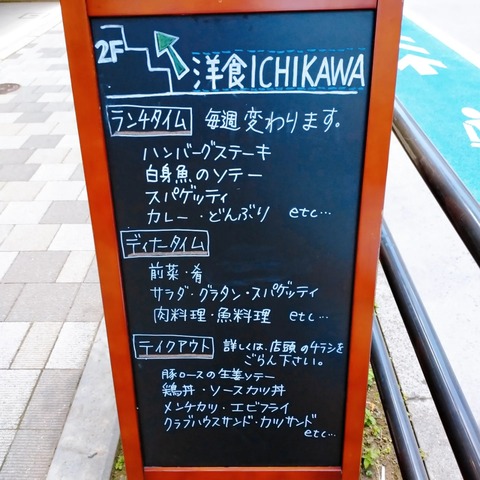 2F 洋食ICHIKAWA
ランチタイム 毎週変わります。
ハンバーグステーキ
白身魚のソテー
スパゲッティ
カレー・どんぶり etc…
ディナータイム
前菜・肴
サラダ・グラタン・スパゲッティ
肉料理・魚料理 etc…
テイクアウト 詳しくは、店頭のチラシを
ごらん下さい。
豚ロースの生姜ソテー
鶏丼・ソースカツ丼
メンチカツ・エビフライ
クラブハウスサンド・カツサンド
etc…